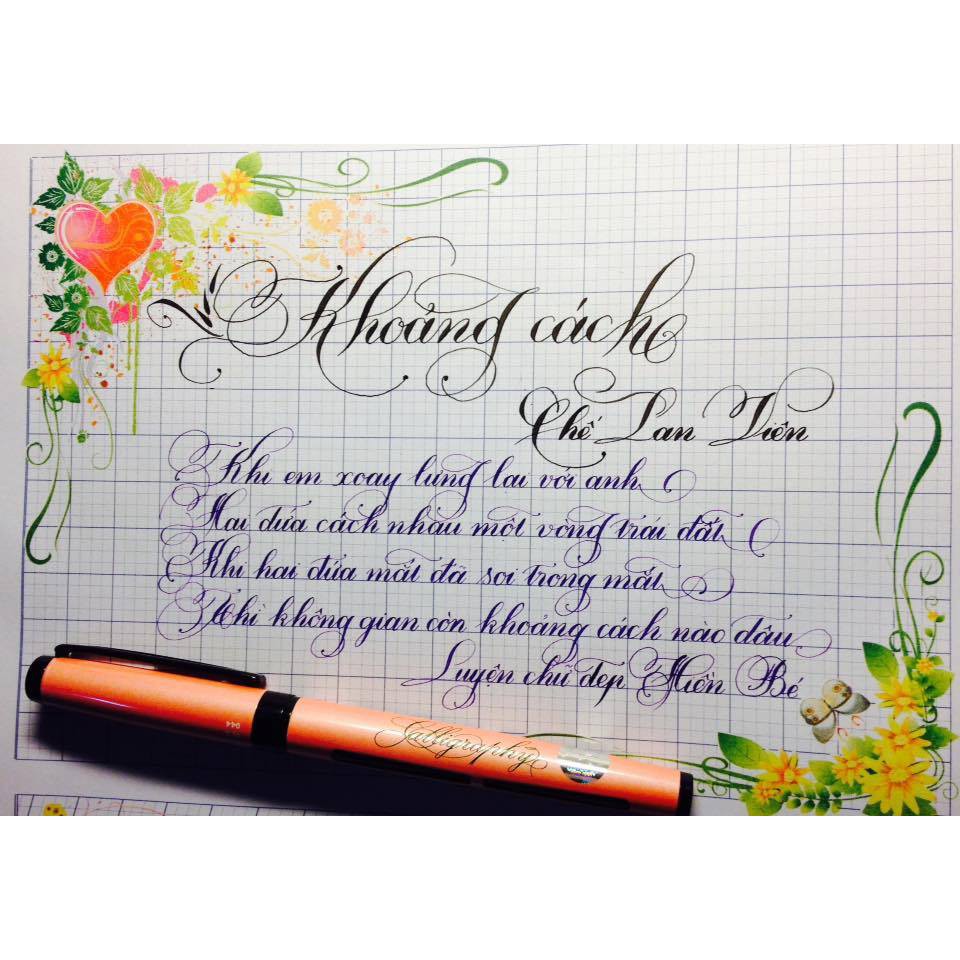 Khoảng cách
Chế Lan Viên
Khi em xoay lưng lại với anh
Hai đứa cách nhau một vòng trái đất
Khi hai đứa mắt đã soi trong mắt
Thì không gian còn khoảng cách nào đâu
Luyện chữ đẹp Hiền Bé
Calligraphy
044